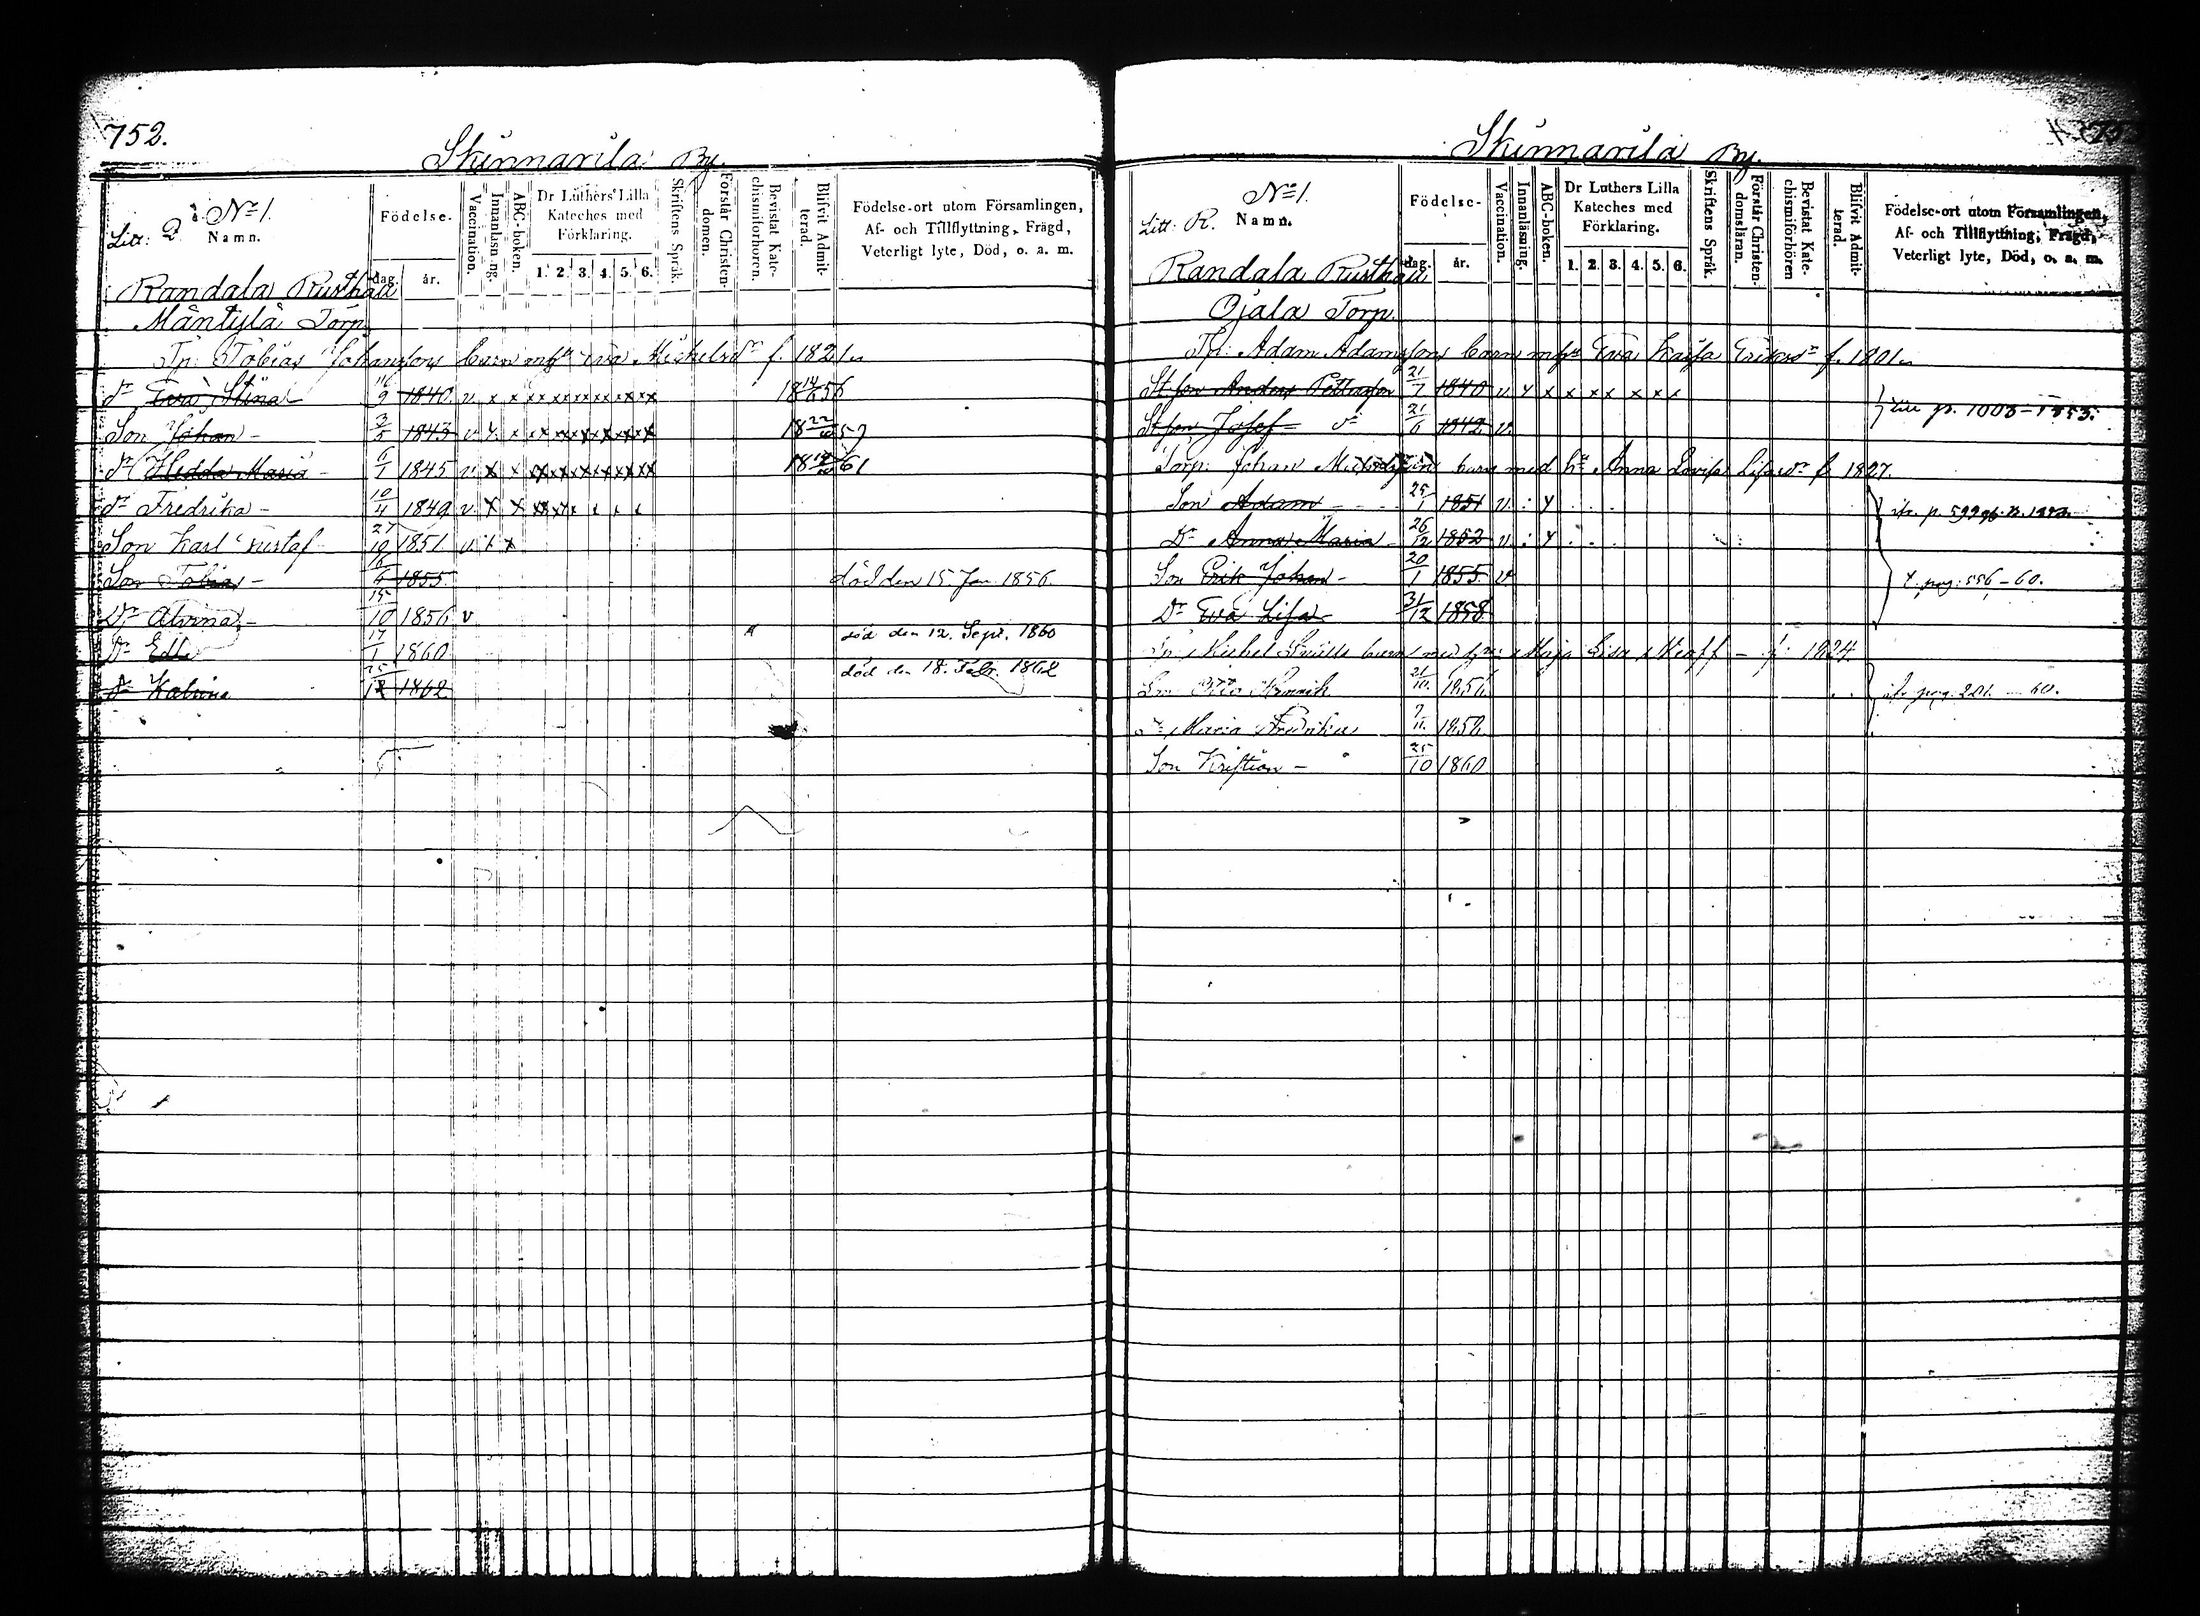 752.
Skinnarila By.
Litt: Q. No 1.
Namn.
Födelse.
dag. år.
Vaccination.
Innanläsning.
ABC-boken.
Dr Luthers Lilla Kateches med Förklaring.
1. 2. 3. 4. 5. 6.
Skriftens Språk.
Förstår Christendomen.
Bevistat Katechismiförhören.
Blifvit Admitterad.
Födelse-ort utom Församlingen,
Af- och Tillflyttning, Frägd,
Veterligt lyte, Död, o. a. m.
Randala Rusthåll
Mäntylä Torp
Tp: Tobias Johanssons barn m hu Eva Michelsdr f. 1821.
dr Eva Stina 16/9 1840. v. x x x x x x x x x x 18 14/6 56
Son Johan - 3/5 1843 v. x. x x x x x x x x x 18 22/6 59
dr Hedda Maria - 6/1 1845 v. x x x x x x x x x x 18 61
dr Fredrika - 10/4 1849 v. x x x x x
Son Karl Gustaf 27/10 1851 v. x x
Son Tobias - 1855. död den 15 Jan. 1856.
Dr Alvina - 15/10 1856 v
Dr Edla 17/1 1860 död den 12. Sept. 1860
dr Katrina 25/12 1862 död den 18. Febr. 1862
Skinnarila By.
Litt: R. No 1.
Namn.
Födelse-
dag. år.
Vaccination.
Innanläsning.
ABC-boken.
Dr Luthers Lilla Kateches med Förklaring.
1. 2. 3. 4. 5. 6.
Skriftens Språk.
Förstår Christendomsläran.
Bevistat Katechismiförhören
Blifvit Admitterad.
Födelse-ort utom Församlingen,
Af- och Tillflyttning, Frägd,
Veterligt lyte, Död, o. a. m.
Randala Rusthåll
Ojala Torp.
Tp: Adam Adamssons barn m hu Eva Kaisa Eriksdr f. 1801.
Stfson Anders Pettersson 21/7 1840 v. x x x x x x x x
Stfson Josef - v 21/6 1842 v. p. 1003-1853.
Torp: Johan barn med hu Anna Lovisa f. 1827.
Son Adam - - - 25/1 1851 v. : x
Dr Anna Maria - 26/12 1852 v : x
Son Erik Johan - 20/1 1855 v pag: 556-60.
Dr Eva Lisa - 31/12 1858
Tp: Michel barn med hu: Maja Lisa - f: 1824.
Son Otto Henrik 21/10. 1856. pag. 201. - 60.
dr Maria Fredrika 7/11. 1858.
Son Kristian - 25/10 1860